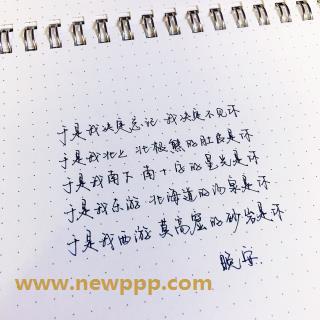 于是我决定忘记 我决定不见你
于是我北上 北极熊的是你
于是我南下 南十字的星光是你
于是我东游 北海道的汤泉是你
于是我西游 莫高窟的砂岩是你
晚安
www.newppp.com